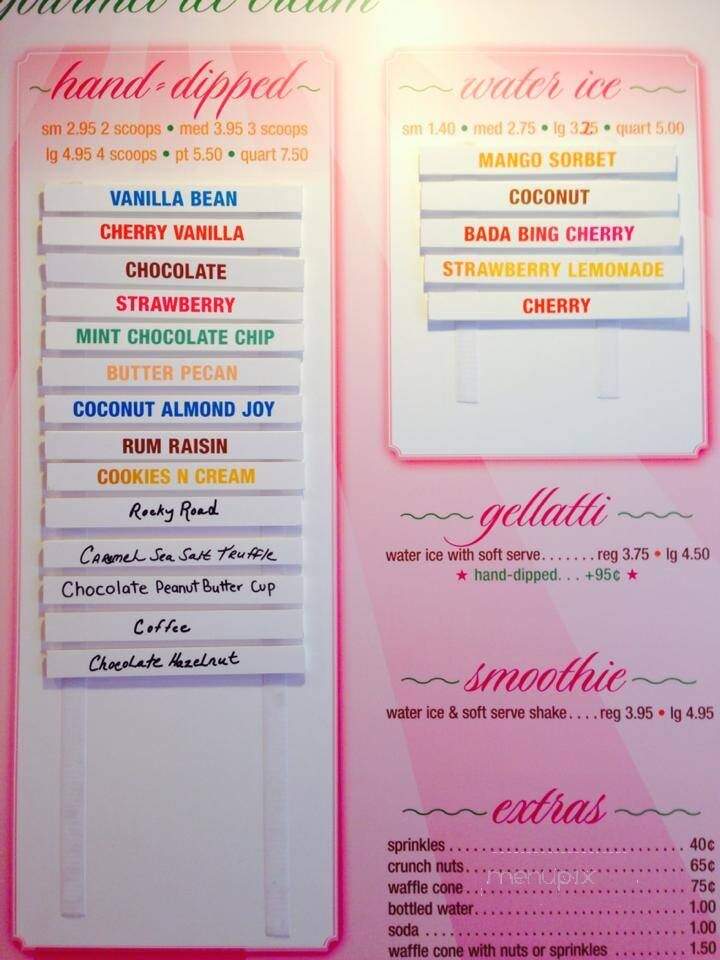 gourmet ice cream
hand-dipped
sm 2.95 2 scoops • med 3.95 3 scoops
lg 4.95 4 scoops • pt 5.50 • quart 7.50
VANILLA BEAN
CHERRY VANILLA
CHOCOLATE
STRAWBERRY
MINT CHOCOLATE CHIP
BUTTER PECAN
COCONUT ALMOND JOY
RUM RAISIN
COOKIES N CREAM
Rocky Road
Caramel Sea Salt Truffle
Chocolate Peanut Butter Cup
Coffee
Chocolate Hazelnut
water ice
sm 1.40 • med 2.75 • lg 3.25 • quart 5.00
MANGO SORBET
COCONUT
BADA BING CHERRY
STRAWBERRY LEMONADE
CHERRY
gellatti
water ice with soft serve.......reg 3.75 • lg 4.50
★ hand-dipped... +95¢ ★
smoothie
water ice & soft serve shake....reg 3.95 • lg 4.95
extras
sprinkles.............................40¢
crunch nuts..........................65¢
waffle cone..........................75¢
bottled water........................1.00
soda.................................1.00
waffle cone with nuts or sprinkles.........1.50
menupix